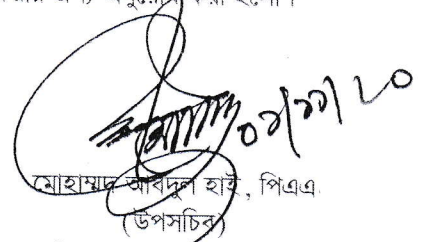 অনুরোধ করা হলো।
০১/১১/২০
মোহাম্মদ আবদুল হাই, পিএএ
(উপসচিব)